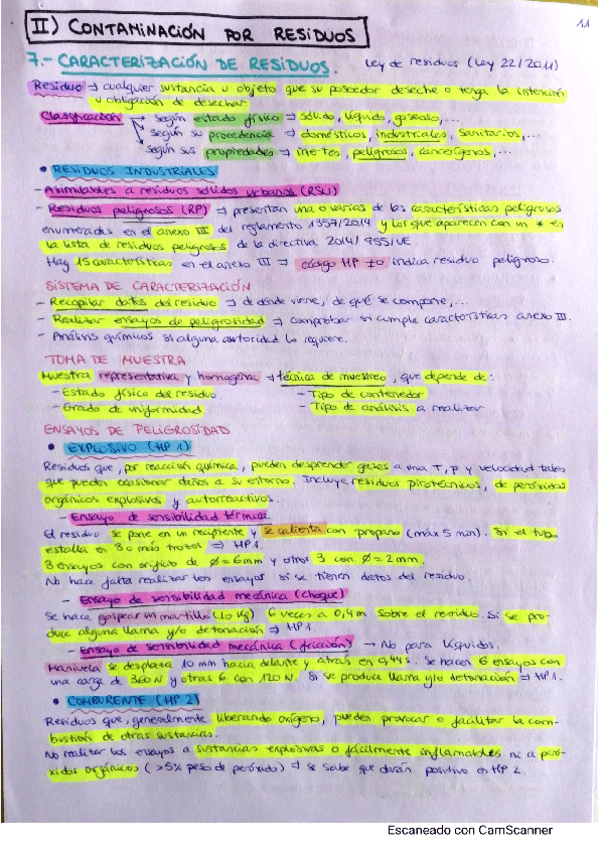 II) CONTAMINACIÓN POR RESIDUOS
11
7.- CARACTERIZACIÓN DE RESIDUOS. Ley de residuos (Ley 22/2011)
Residuo → cualquier sustancia u objeto que su poseedor deseche o tenga la intención
u obligación de desechar
Clasificación → según estado físico → sólido, líquido, gaseoso,...
según su procedencia → domésticos, industriales, sanitarios,...
según sus propiedades → inertes, peligrosos, cancerígenos,...
• RESIDUOS INDUSTRIALES
- Asimilables a residuos sólidos urbanos (RSU)
- Residuos peligrosos (RP) → presentan una o varias de las características peligrosas
enumeradas en el anexo III del reglamento 1357/2014 y los que aparecen con un * en
la lista de residuos peligrosos de la directiva 2014/955/UE.
Hay 15 características en el anexo III → código HP indica residuo peligroso.
SISTEMA DE CARACTERIZACIÓN
- Recopilar datos del residuo → de dónde viene, de qué se compone,...
- Realizar ensayos de peligrosidad → comprobar si cumple características anexo III.
- Análisis químicos si alguna autoridad lo requiere.
TOMA DE MUESTRA
Muestra representativa y homogénea → técnica de muestreo, que depende de:
- Estado físico del residuo. - Tipo de contenedor
- Grado de uniformidad - Tipo de análisis a realizar
ENSAYOS DE PELIGROSIDAD
• EXPLOSIVO (HP 1)
Residuos que, por reacción química, pueden desprender gases a una T, p y velocidad tales
que pueden ocasionar daños a su entorno. Incluye residuos pirotécnicos, de peróxidos
orgánicos explosivos y autorreactivos.
- Ensayo de sensibilidad térmica
El residuo se pone en un recipiente y se calienta con propano (máx 5 min). Si el tubo
estalla en 3 o más trozos → HP1.
3 ensayos con orificio de Ø = 6mm y otros 3 con Ø = 2mm.
No hace falta realizar los ensayos si se tienen datos del residuo.
- Ensayo de sensibilidad mecánica (choque)
Se hace golpear un martillo (10 Kg) 6 veces a 0,4m sobre el residuo. Si se pro-
duce alguna llama y/o detonación → HP1.
- Ensayo de sensibilidad mecánica (fricción) → No para líquidos.
Manivela se desplaza 10 mm hacia delante y atrás en 0,44s. Se hacen 6 ensayos con
una carga de 360 N y otras 6 con 120 N. Si se produce llama y/o detonación → HP1.
• COMBURENTE (HP 2)
Residuos que, generalmente liberando oxígeno, pueden provocar o facilitar la com-
bustión de otras sustancias.
No realizar los ensayos a sustancias explosivas o fácilmente inflamables ni a peró-
xidos orgánicos (>5% peso de peróxido) → se sabe que darán positivo en HP 2.
Escaneado con CamScanner